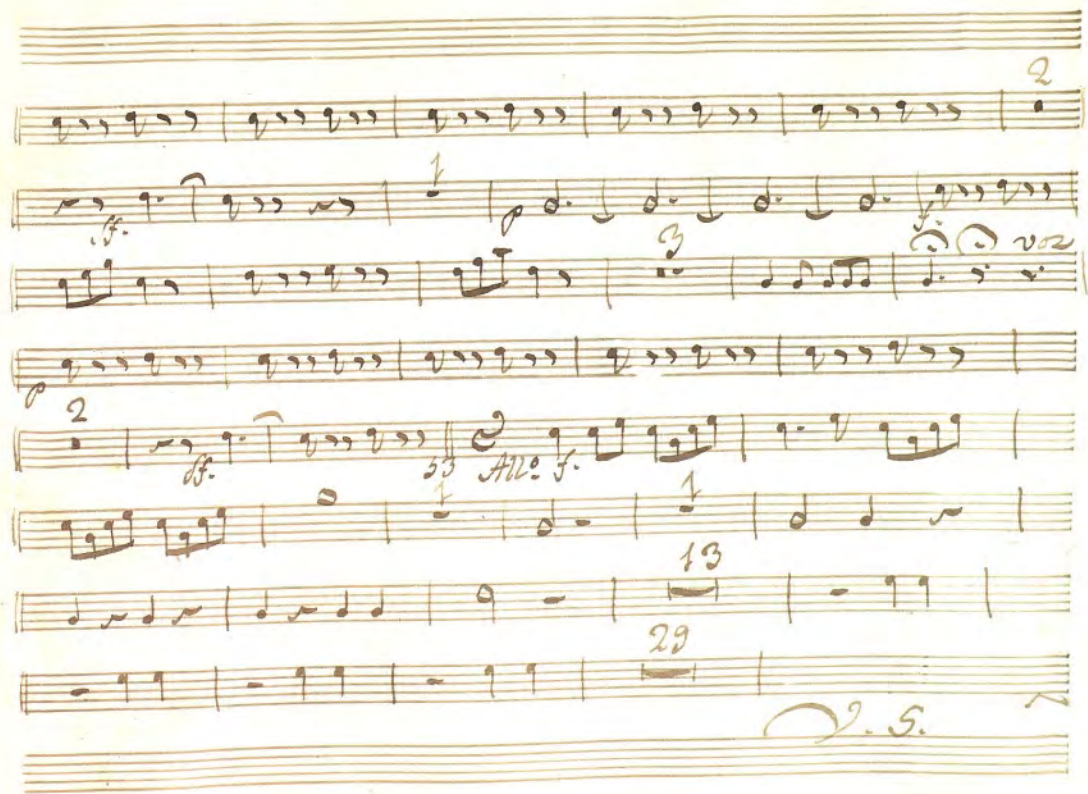 2
1
ff. p f.
3 voz
p
2
ff. 53 Allo. f.
1 1
13
29
V. S.